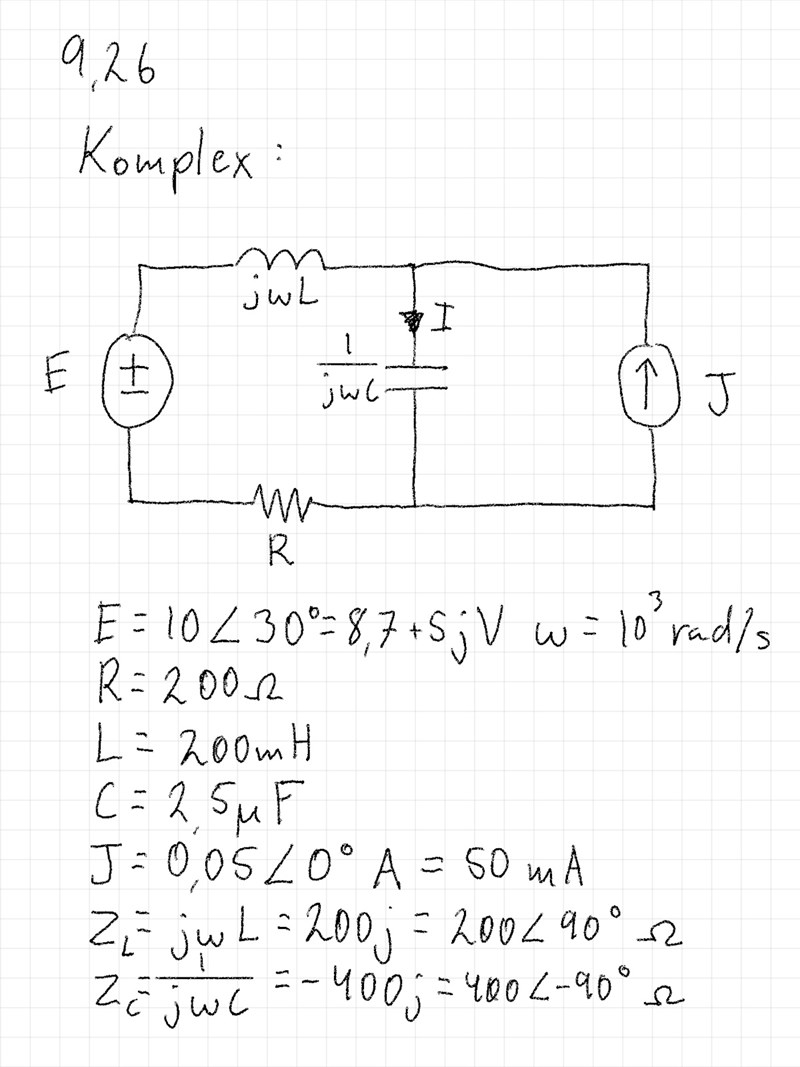 9,26
Komplex:
jwL
I
E
1/jwC
J
R
E = 10∠30° = 8,7+5jV w = 10³ rad/s
R = 200Ω
L = 200mH
C = 2,5μF
J = 0,05∠0° A = 50 mA
Z_L = jwL = 200j = 200∠90° Ω
Z_C = 1/jwC = -400j = 400∠-90° Ω